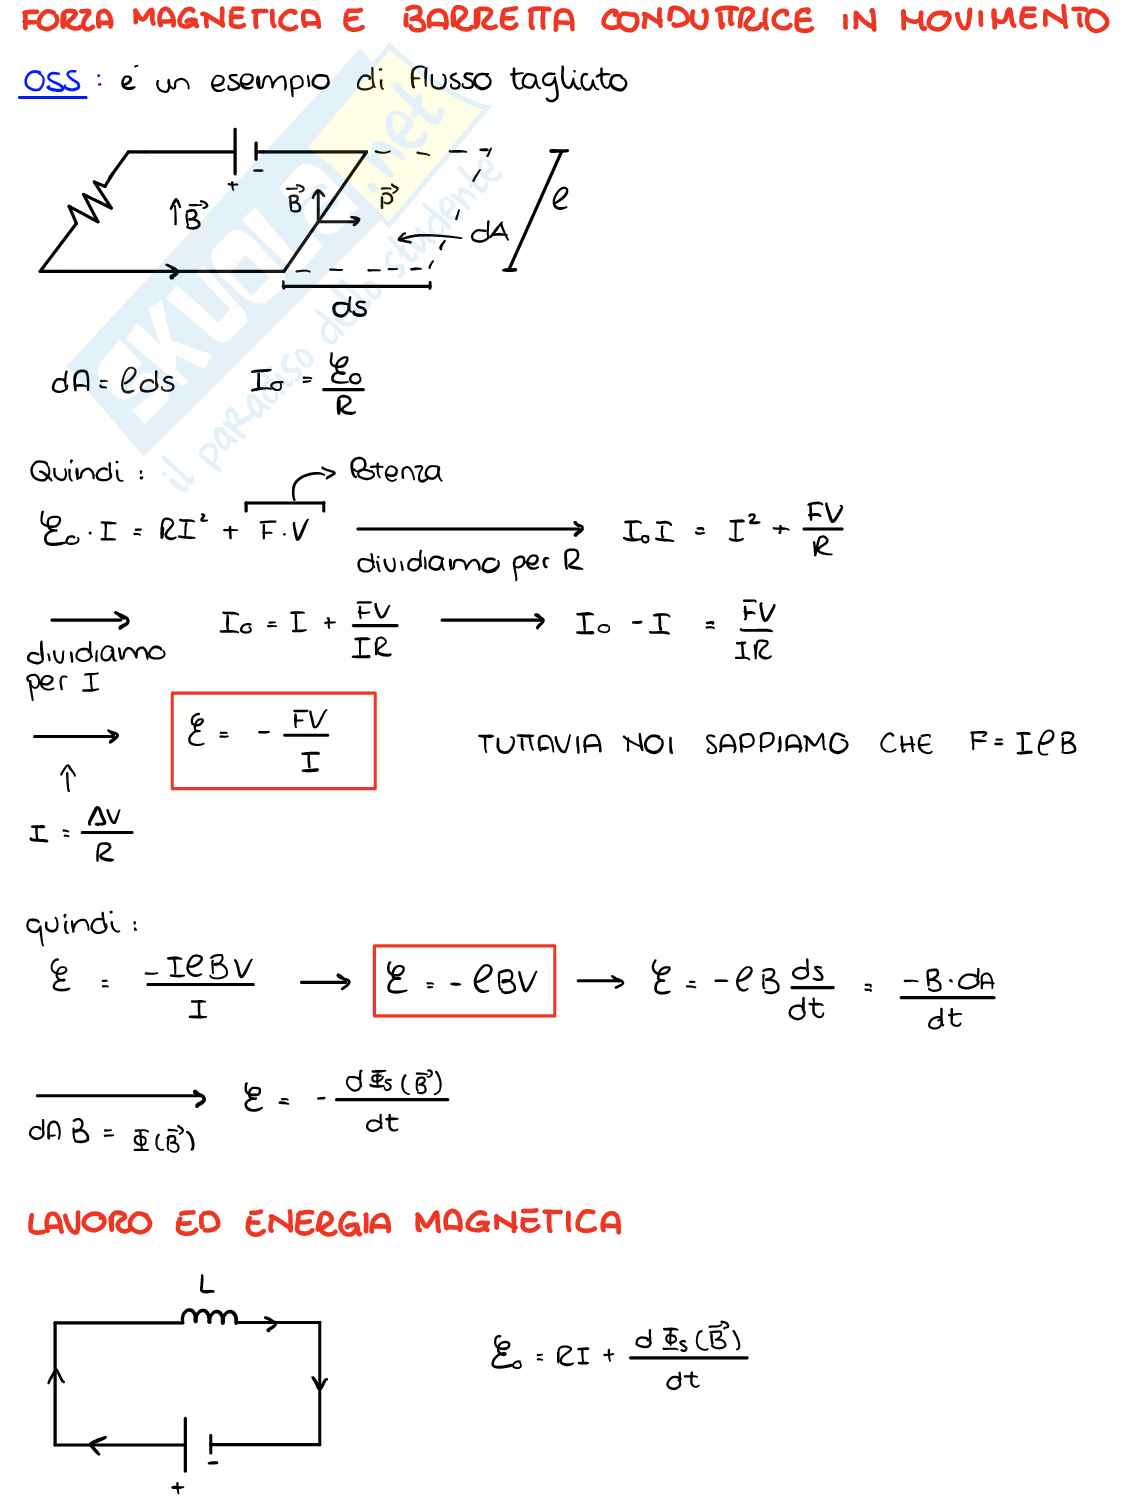 FORZA MAGNETICA E BARRETTA CONDUTTRICE IN MOVIMENTO
OSS : è un esempio di flusso tagliato
+ -
↑B⃗ B⃗ F⃗ dA ℓ
ds
dA = ℓds I₀ = ℰ₀/R
Quindi : → Potenza
ℰ₀ · I = RI² + F·V → dividiamo per R I₀I = I² + FV/R
→ dividiamo per I I₀ = I + FV/IR → I₀ - I = FV/IR
→ ℰ = - FV/I TUTTAVIA NOI SAPPIAMO CHE F = IℓB
↑
I = ΔV/R
quindi :
ℰ = -IℓBV/I → ℰ = - ℓBV → ℰ = -ℓB ds/dt = -B·dA/dt
→ dA B = Φ(B⃗) ℰ = - dΦs(B⃗)/dt
LAVORO ED ENERGIA MAGNETICA
L
ℰ₀ = RI + dΦs(B⃗)/dt
+ -
SKUOLA.net
il paradiso dello studente